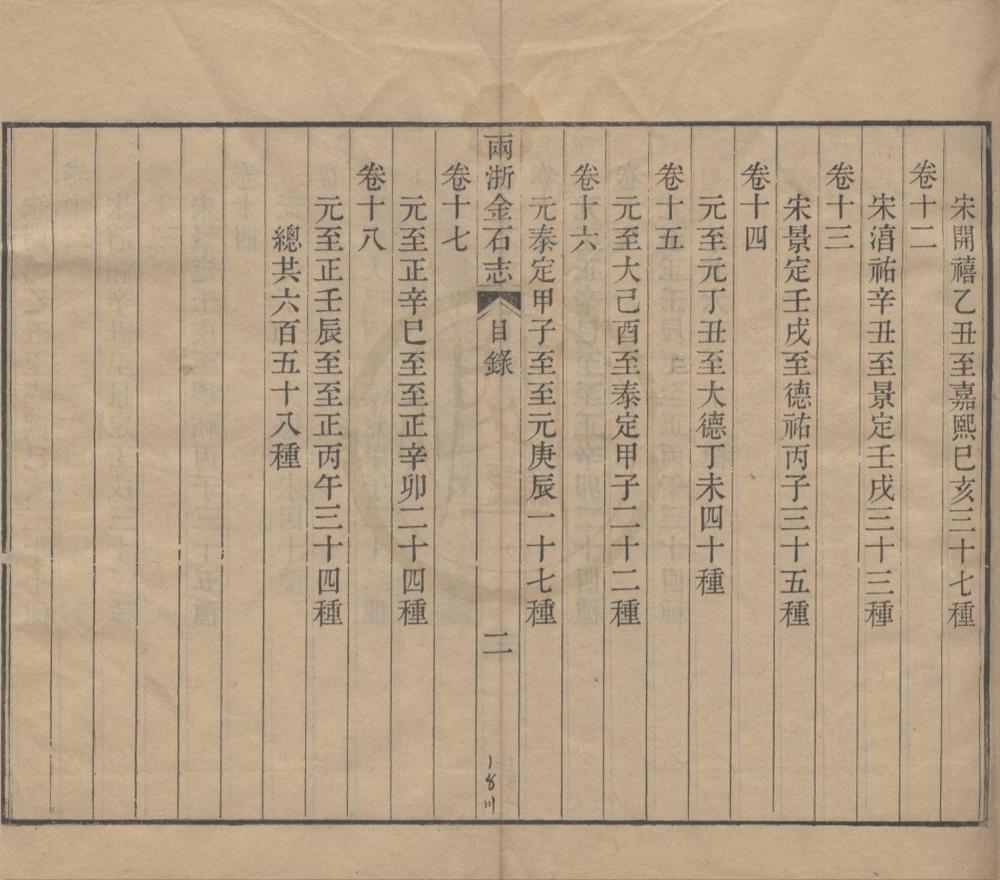 宋開禧乙丑至嘉熙己亥三十七種
卷十二
宋淯祐辛丑至景定壬戌三十三種
卷十三
宋景定壬戌至德祐丙子三十五種
卷十四
元至元丁丑至大德丁未四十種
卷十五
元至大己酉至泰定甲子二十二種
卷十六
元泰定甲子至至元庚辰一十七種
兩浙金石志
目錄
二
卷十七
元至正辛巳至至正辛卯二十四種
卷十八
元至正壬辰至至正丙午三十四種
總共六百五十八種